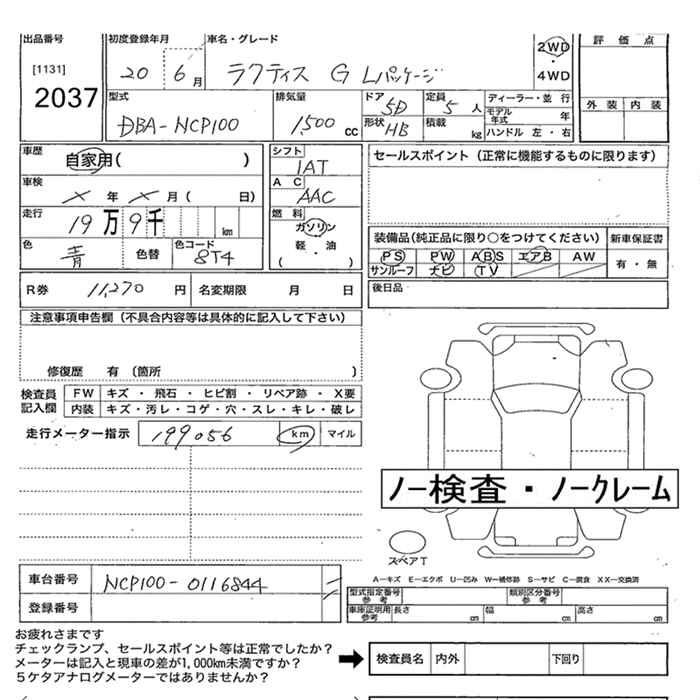 出品番号
初度登録年月
車名・グレード
2WD
4WD
評価点
[1131]
2037
20 6月
ラクティス G Lパッケージ
外装 内装
型式
DBA-NCP100
排気量
1,500 cc
ドア 5D
形状 HB
定員 5 人
積載 kg
ディーラー・並行
モデル年式 年
ハンドル 左・右
車歴
自家用( )
車検
× 年 × 月 ( 日)
走行
19万9千 km
色
青
色替
色コード
8T4
シフト
1AT
AC
AAC
燃料
ガソリン
軽・油
( )
セールスポイント(正常に機能するものに限ります)
装備品(純正品に限り○をつけてください)
新車保証書
PS PW ABS エアB AW
サンルーフ ナビ TV
有・無
R券 11,270 円
名変期限 月 日
後日品
注意事項申告欄(不具合内容等は具体的に記入して下さい)
修復歴 有 (箇所 )
検査員記入欄
FW キズ・飛石・ヒビ割・リペア跡・X要
内装 キズ・汚レ・コゲ・穴・スレ・キレ・破レ
走行メーター指示 199056 km マイル
ノー検査・ノークレーム
スペアT
A―キズ E―エクボ U―凹み W―補修跡 S―サビ C―腐食 XX―交換済
車台番号 NCP100-0116844
登録番号
型式指定番号 参考
類別区分番号 参考
車庫証明用 参考 長さ cm 幅 cm 高さ cm
お疲れさまです
チェックランプ、セールスポイント等は正常でしたか?
メーターは記入と現車の差が1,000km未満ですか?
5ケタアナログメーターではありませんか?
検査員名 内外 下回り